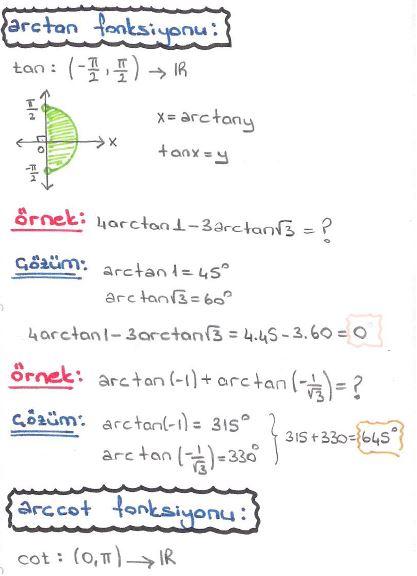 arctan fonksiyonu:
tan: (-π/2, π/2) → IR
π/2
0
x
-π/2
x = arctany
tanx = y
Örnek: 4arctan1 - 3arctan√3 = ?
Çözüm: arctan1 = 45°
arctan√3 = 60°
4arctan1 - 3arctan√3 = 4.45 - 3.60 = 0
Örnek: arctan(-1) + arctan(-1/√3) = ?
Çözüm: arctan(-1) = 315°
arctan(-1/√3) = 330° } 315 + 330 = 645°
arccot fonksiyonu:
cot: (0, π) → IR